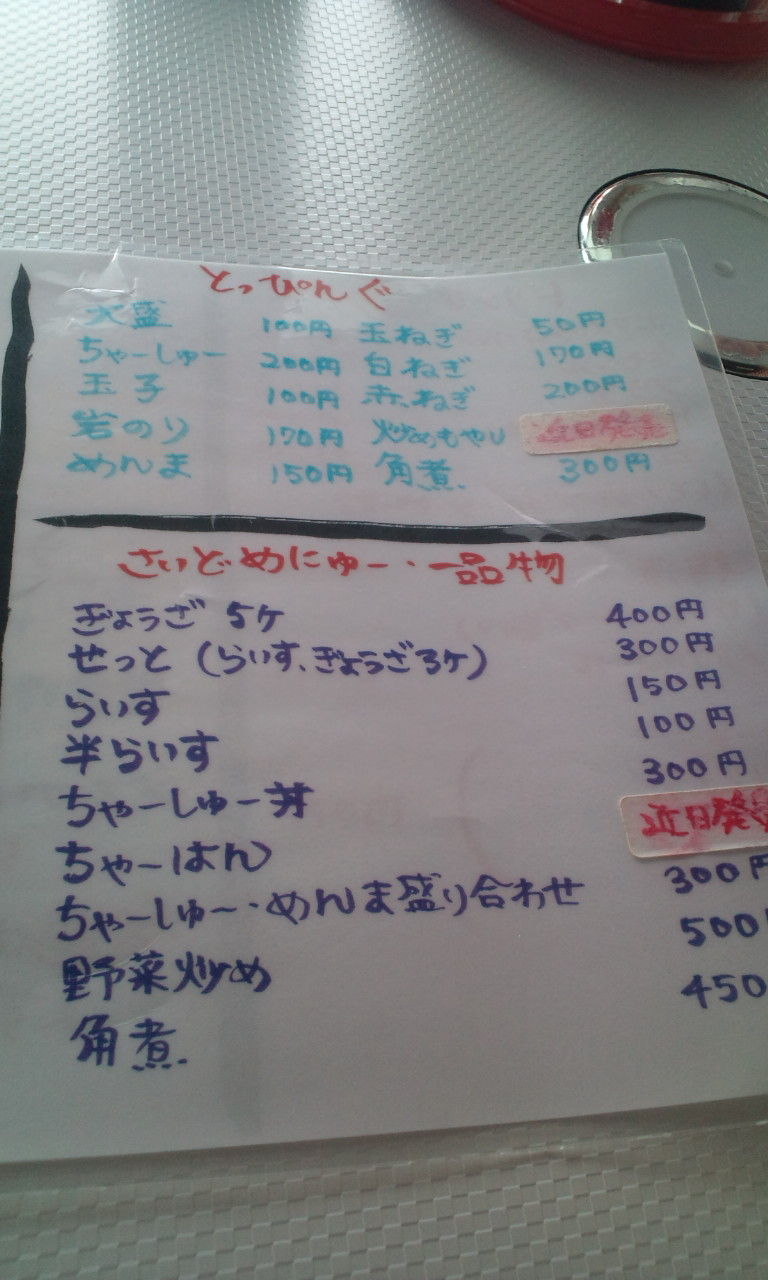 とっぴんぐ
大盛 100円 玉ねぎ 50円
ちゃーしゅー 200円 白ねぎ 170円
玉子 100円 赤ねぎ 200円
岩のり 170円 炒めもやし 近日発売
めんま 150円 角煮 300円
さいどめにゅー・一品物
ぎょうざ 5ケ 400円
せっと（らいす、ぎょうざ3ケ） 300円
らいす 150円
半らいす 100円
ちゃーしゅー丼 300円
ちゃーはん 近日発売
ちゃーしゅー・めんま盛り合わせ 300円
野菜炒め 500
角煮 450